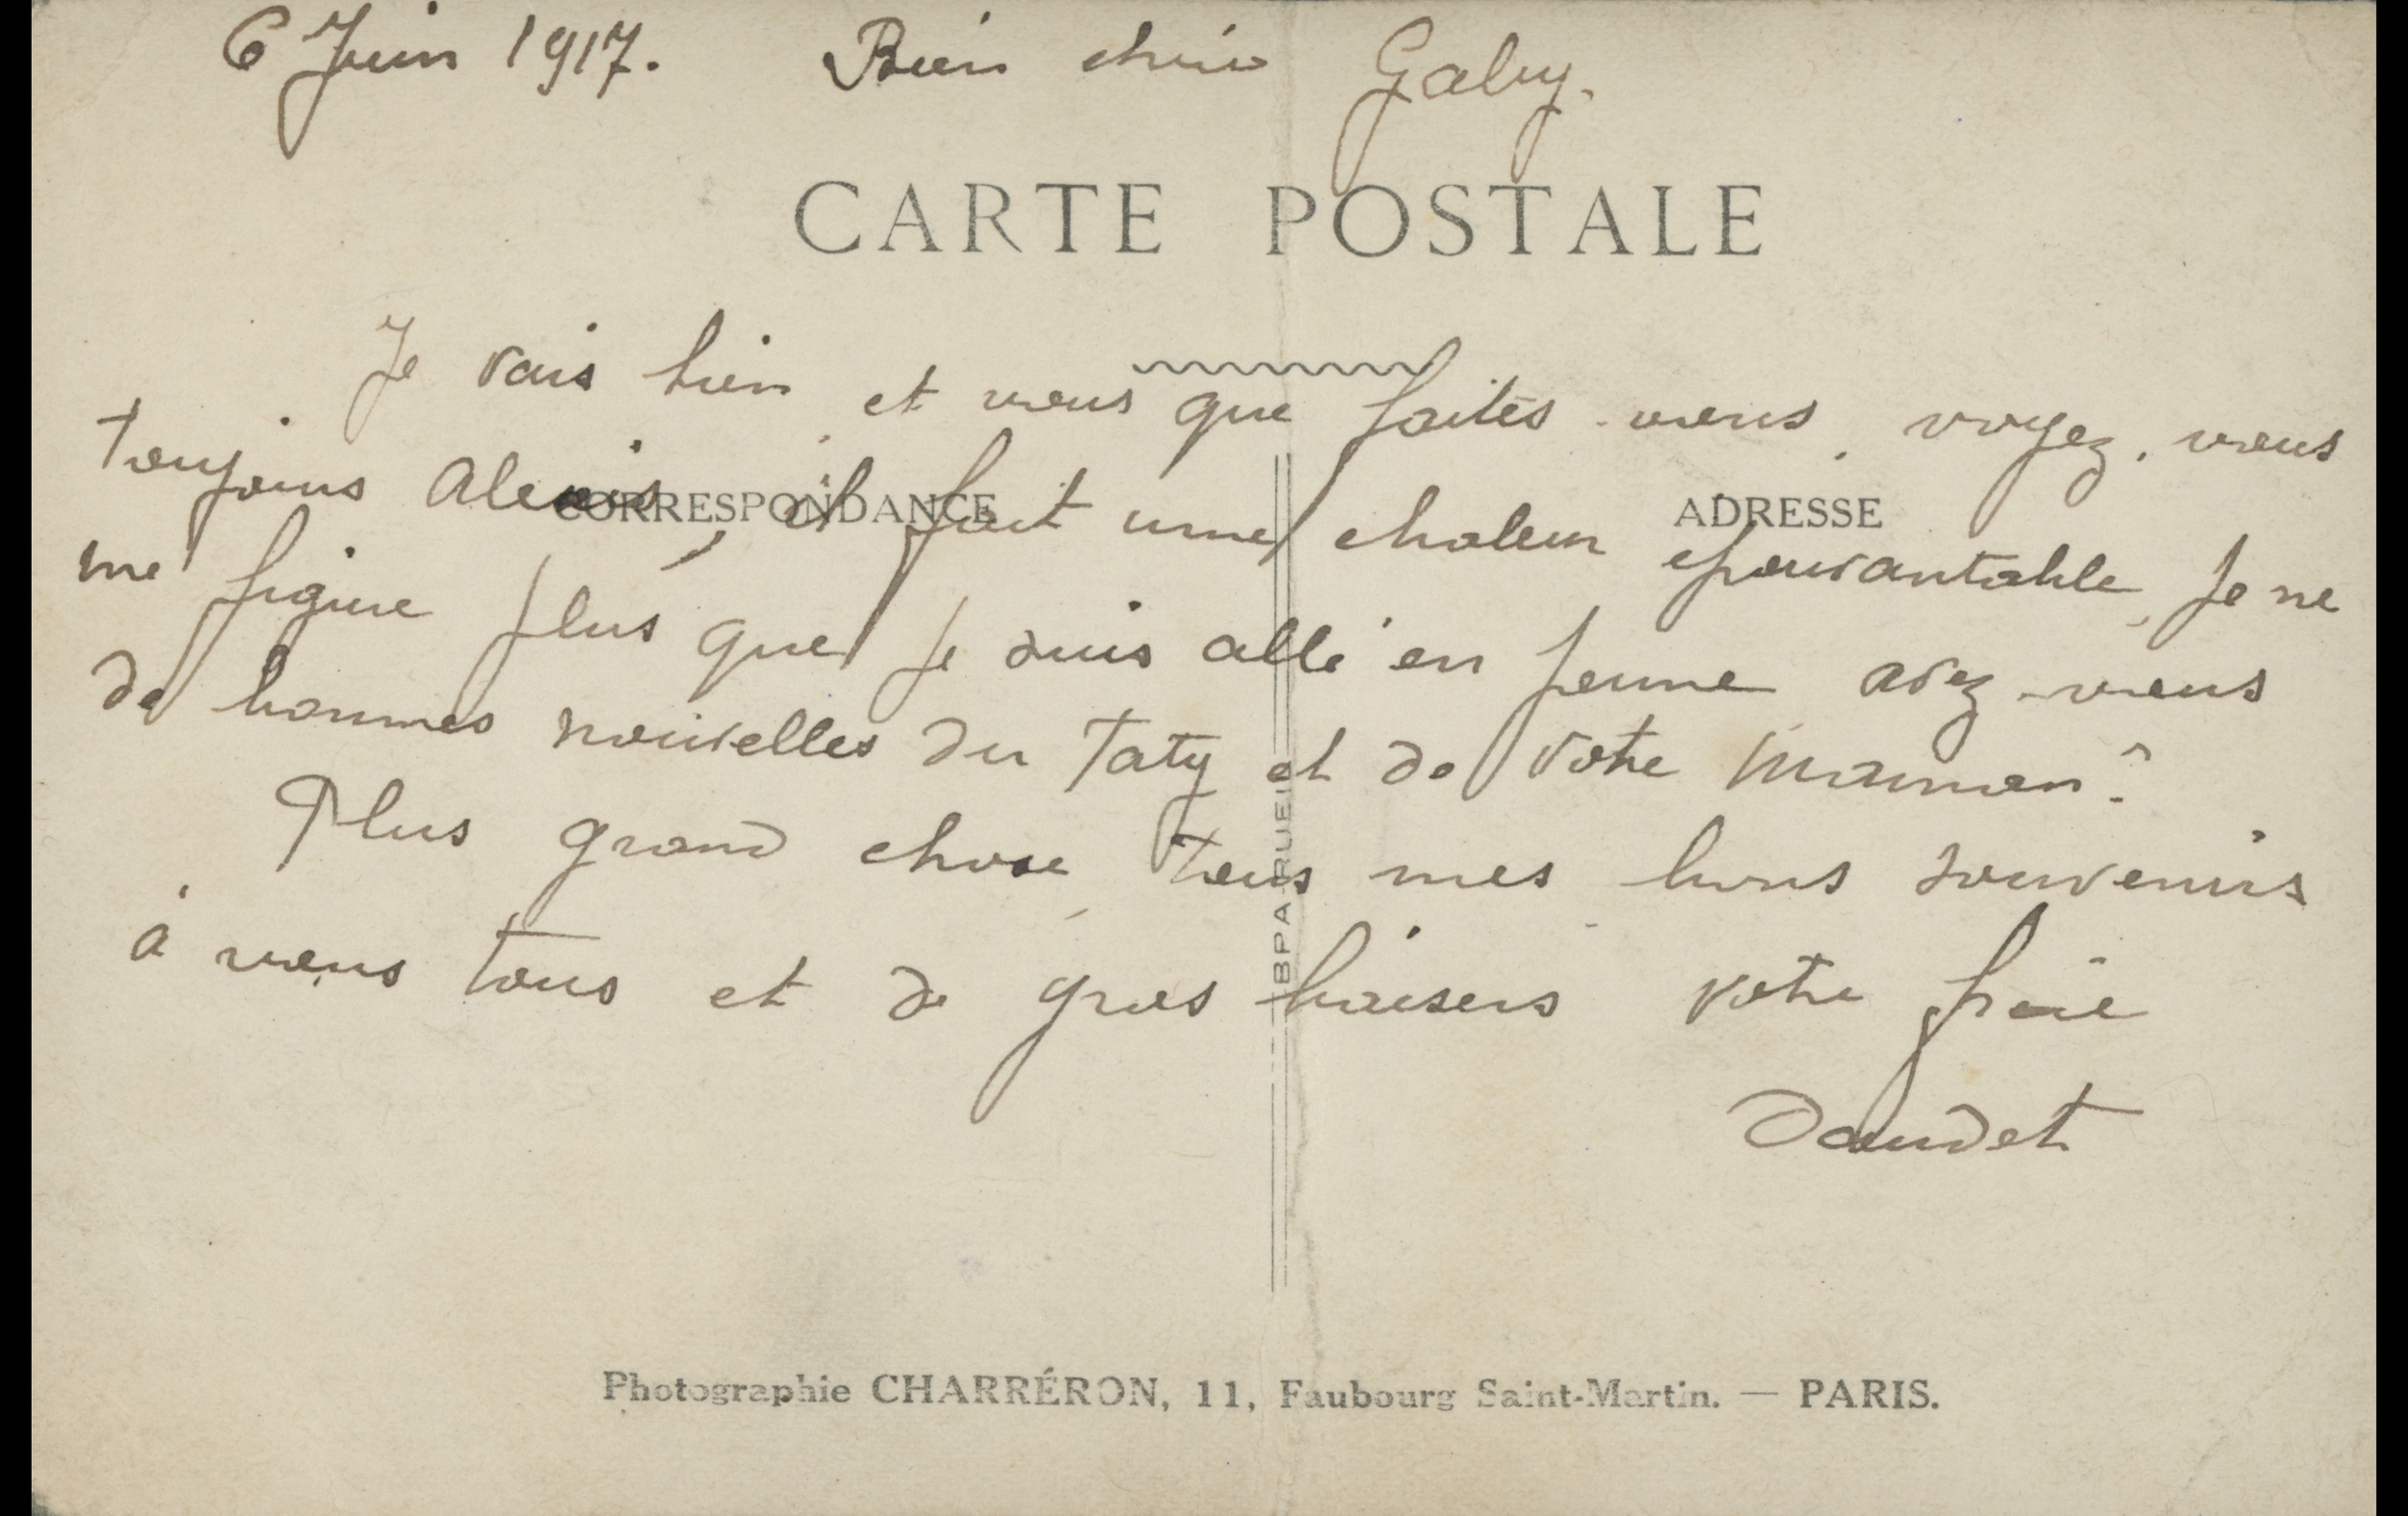 6 Juin 1917. Bien chère Gaby.
CARTE POSTALE
Je vais bien, et vous que faites-vous, voyez-vous
CORRESPONDANCE
ADRESSE
toujours Alexis, il fait une chaleur épouvantable, je ne
me figure plus que je suis allé en perme avez-vous
de bonnes nouvelles du Taty et de votre Maman?
Plus grand chose, tous mes bons souvenirs
à vous tous et de gros baisers votre frère
Daudet
Photographie CHARRÉRON, 11, Faubourg Saint-Martin. — PARIS.